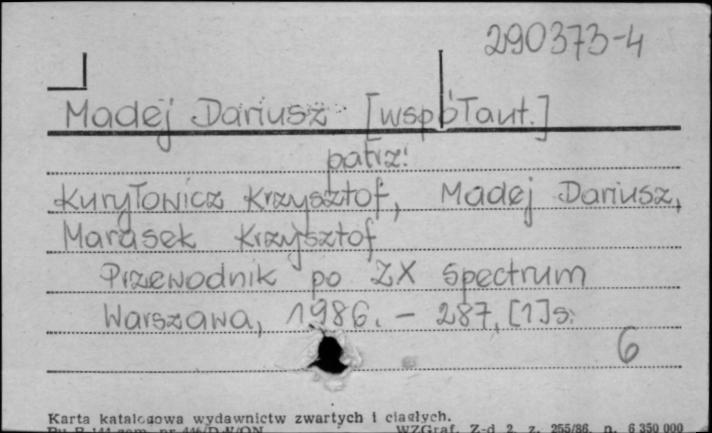 290373-4
Madej Dariusz [współaut.]
patrz:
Kuryłowicz Krzysztof, Madej Dariusz,
Marasek Krzysztof
Przewodnik po ZX Spectrum
Warszawa, 1986. – 287, [1] s.
6
Karta katalogowa wydawnictw zwartych i ciągłych.
WZGraf. Z-d 2. z. 255/86. n. 6 350 000